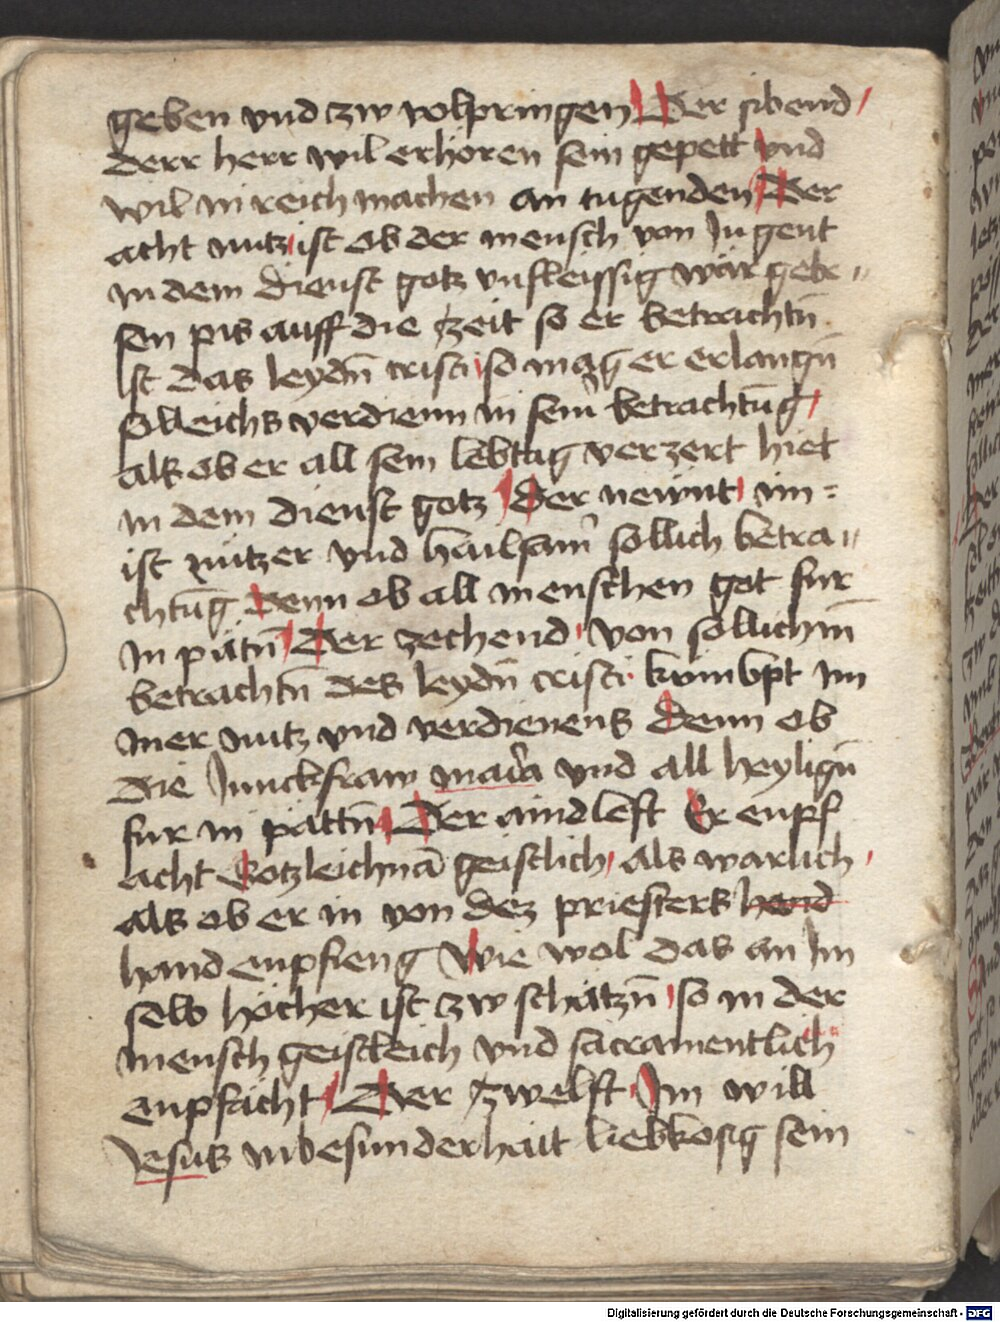 geben vnd zw volpringen Der sibend /
derr herr wil erhoren sein gepett vnd
wil in reich machen an tugenden Der
acht nutz ist ob der mensch von Jugent
in dem dienst gotz vnfleissig wär gebe „
sen pis auff die zeit so er betrachtn̄
ist das leydn̄ cristi so mag er erlangn̄
solleichs verdienn in sein̄ betrachtūg /
als ob er all sein lebtag verzert hiet
in dem dienst gotz Der newnt im =
ist nützer vnd hailsam̄ sollich betra „
chtūg denn ob all menschen got fur
in pätn̄ Der zechend von sollichm̄
betrachtn̄ des leydn̄ cristi kumbpt im
mer nutz vnd verdienens denn ob
die Junckfraw maria vnd all heylign̄
fur in pättn̄ Der aindleft Er enpf
acht Gotzleichnā geistlich / als warlich /
als ob er in von dez priesters hend
hand enpfieng Wie wol das an Im
selb höcher ist zw schätzn̄ so in der
mensch geistleich vnd sacramentlich
enpfächt Der zwelft Im will
Jesus inbesunderhait liebkosig sein
Digitalisierung gefördert durch die Deutsche Forschungsgemeinschaft - DFG